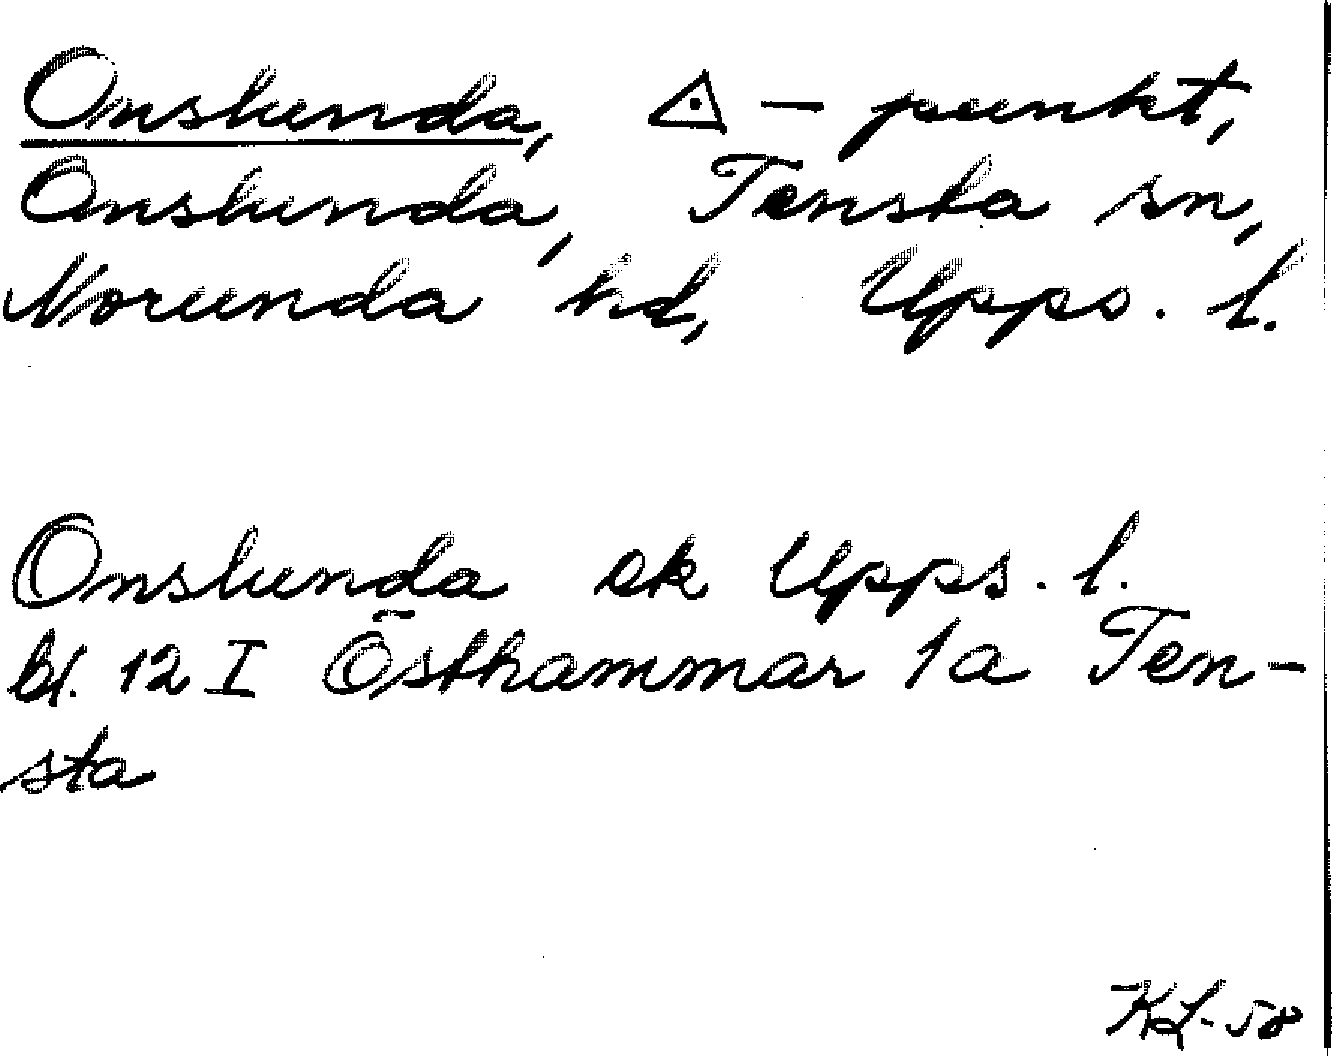 Onslunda, △ – punkt,
Onslunda, Tensta sn,
Norunda hd, Upps. l.
Onslunda ek Upps. l.
bl. 12 I Östhammar 1a Ten-
sta
KL-58